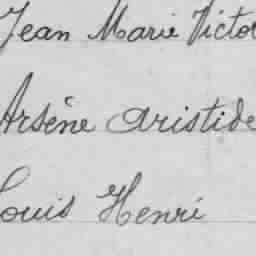 Jean Marie Victor
Arsène Aristide
Louis Henri